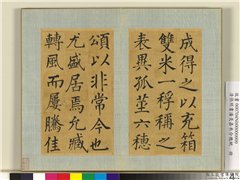 成得之以充箱
雙米一稃稱之
表異孤莖六穗
頌以非常今也
尤盛居焉允臧
轉風而屢騰佳